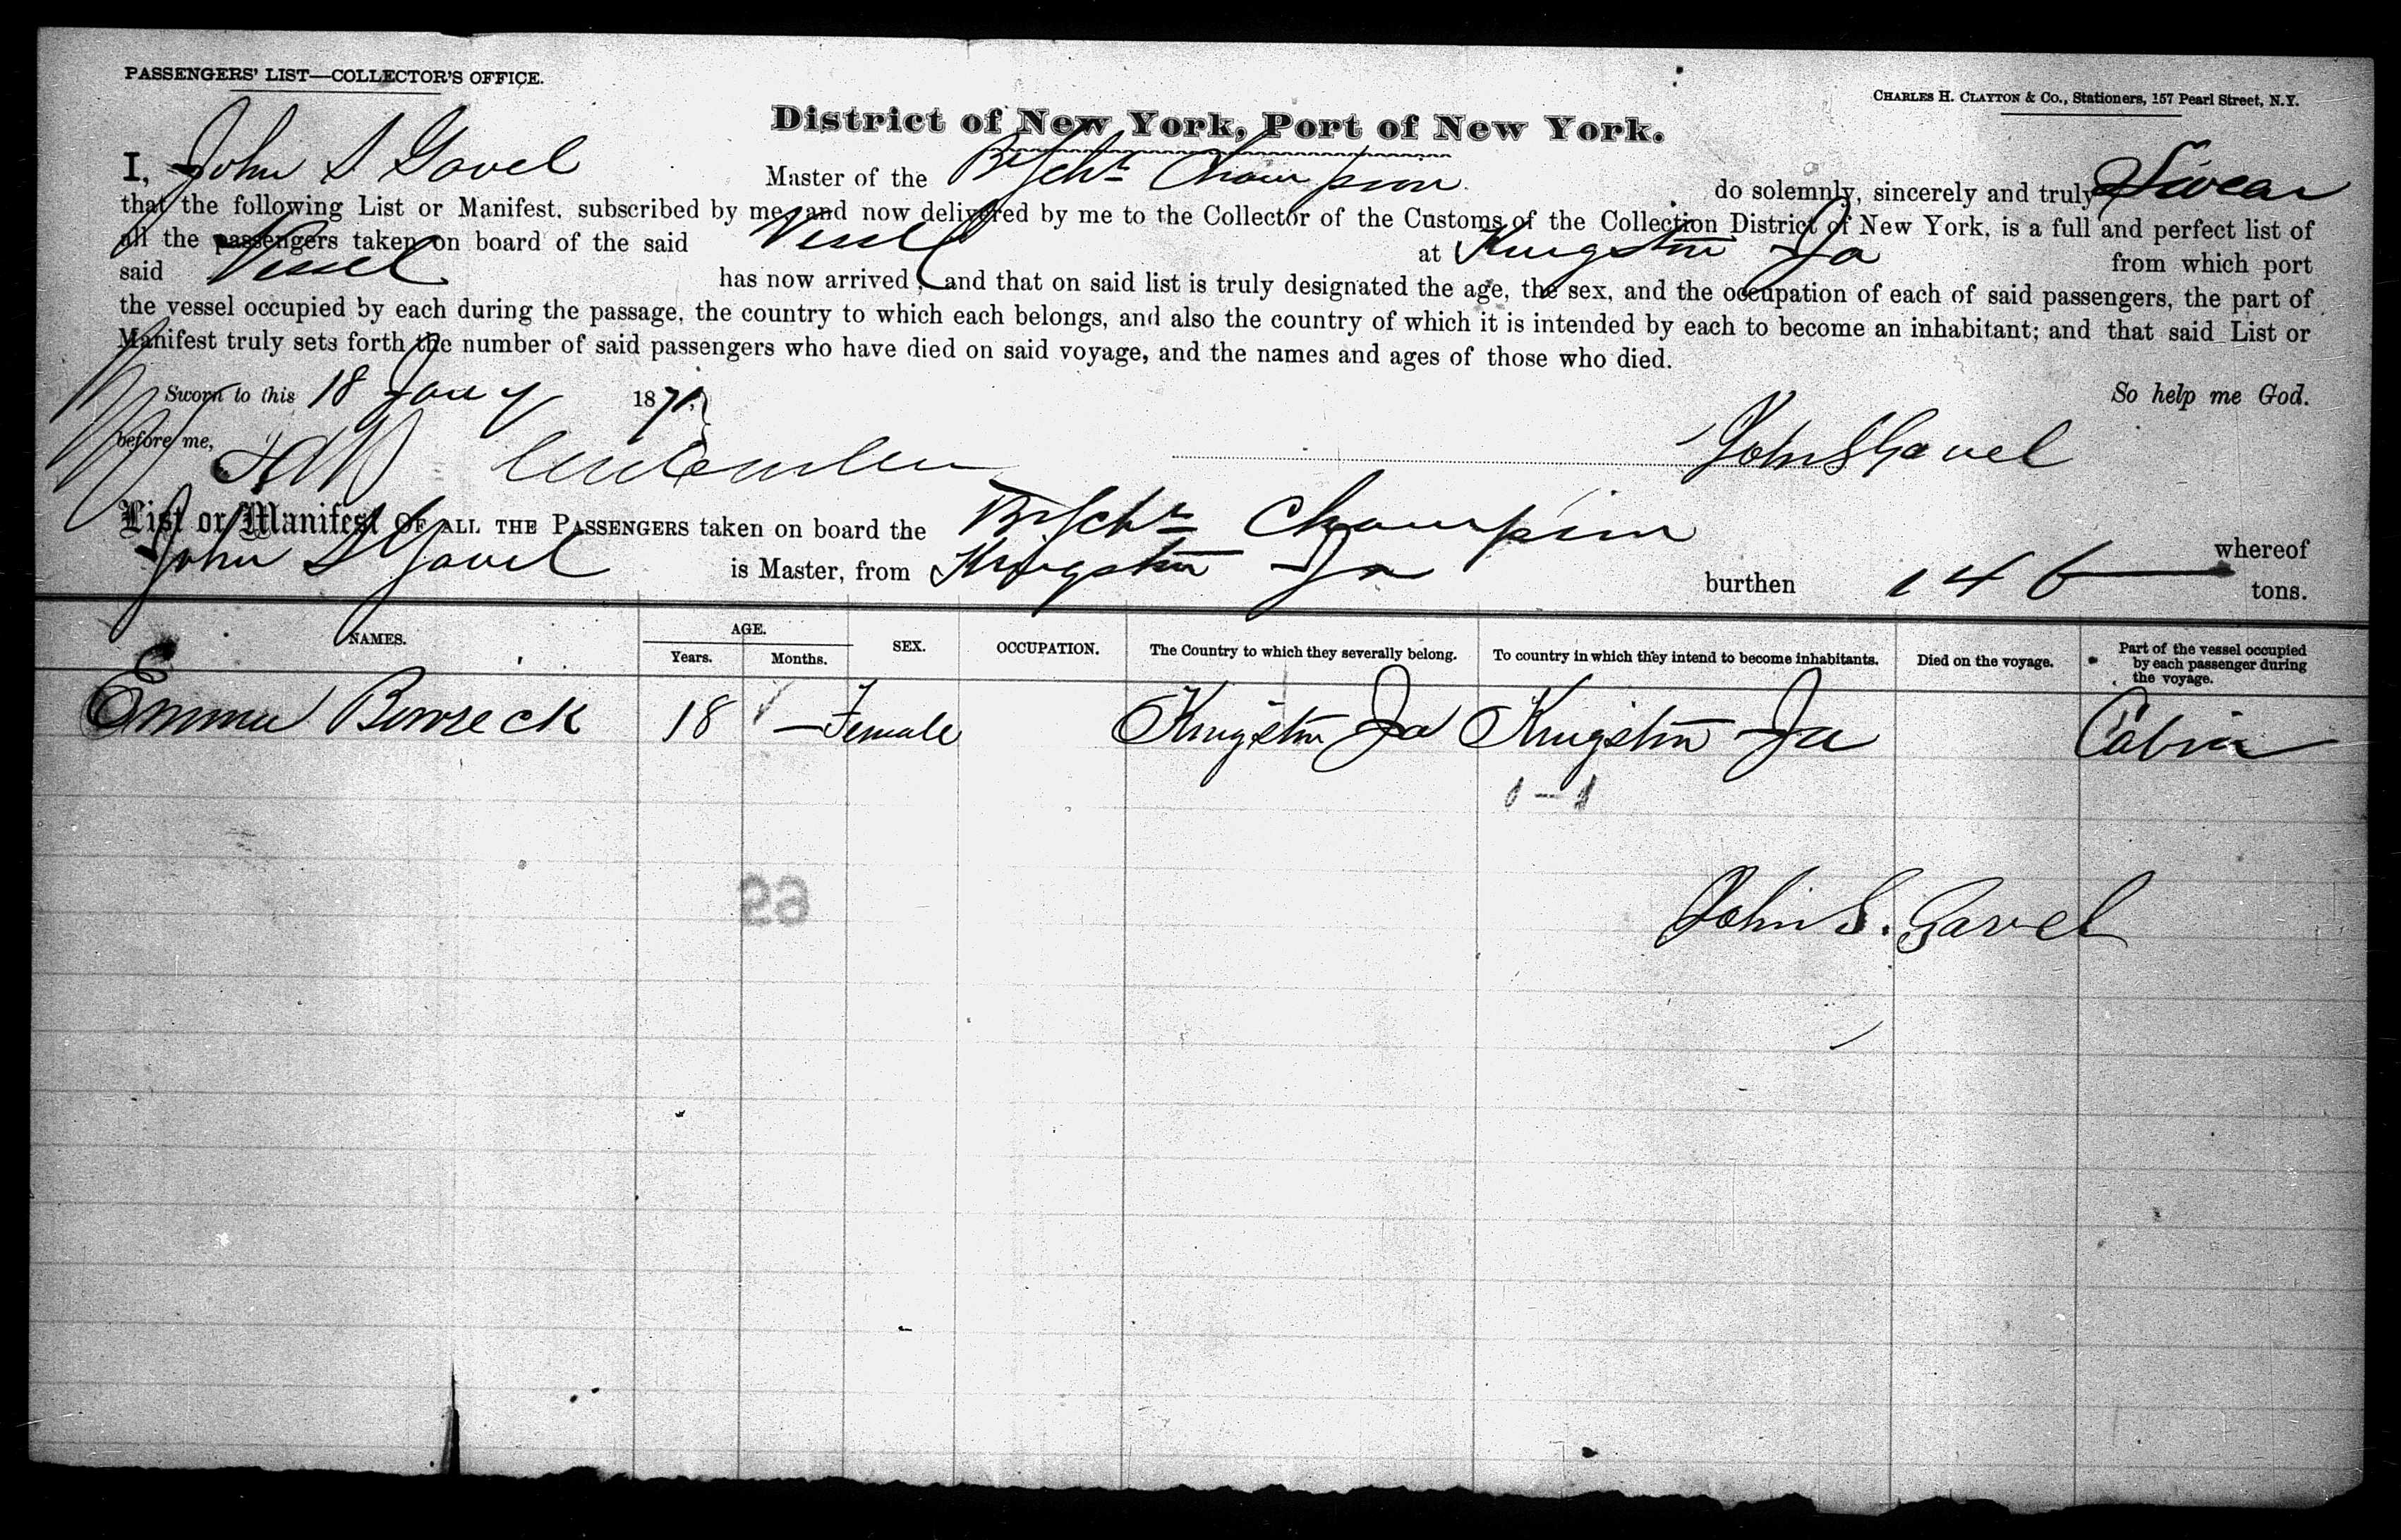 PASSENGERS' LIST—COLLECTOR'S OFFICE.
CHARLES H. CLAYTON & Co., Stationers, 157 Pearl Street, N.Y.
District of New York, Port of New York.
I, John S Gavel Master of the Br Schr Champion do solemnly, sincerely and truly Swear
that the following List or Manifest, subscribed by me, and now delivered by me to the Collector of the Customs of the Collection District of New York, is a full and perfect list of
all the passengers taken on board of the said Vessel at Kingston Ja from which port
said Vessel has now arrived; and that on said list is truly designated the age, the sex, and the occupation of each of said passengers, the part of
the vessel occupied by each during the passage, the country to which each belongs, and also the country of which it is intended by each to become an inhabitant; and that said List or
Manifest truly sets forth the number of said passengers who have died on said voyage, and the names and ages of those who died.
Sworn to this 18 Jany 1871, So help me God.
before me, John S Gavel
List or Manifest OF ALL THE PASSENGERS taken on board the Br Schr Champion whereof
John S Gavel is Master, from Kingston Ja burthen 146 tons.
NAMES. AGE. Years. Months. SEX. OCCUPATION. The Country to which they severally belong. To country in which they intend to become inhabitants. Died on the voyage. Part of the vessel occupied by each passenger during the voyage.
Emma 18 — Female Kingston Ja Kingston Ja Cabin
1-1
John S. Gavel